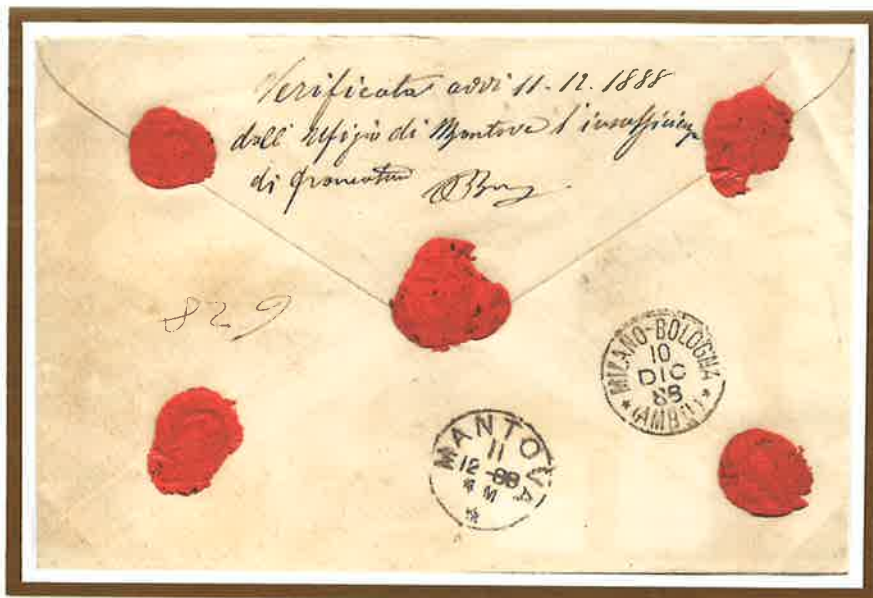 Verificata addì 11. 12. 1888
dall' Ufizio di Mantova l'insufficienza
di francatura
829
MILANO-BOLOGNA
10
DIC
88
* (AMB.) *
MANTOVA
11
12-88
* M
*